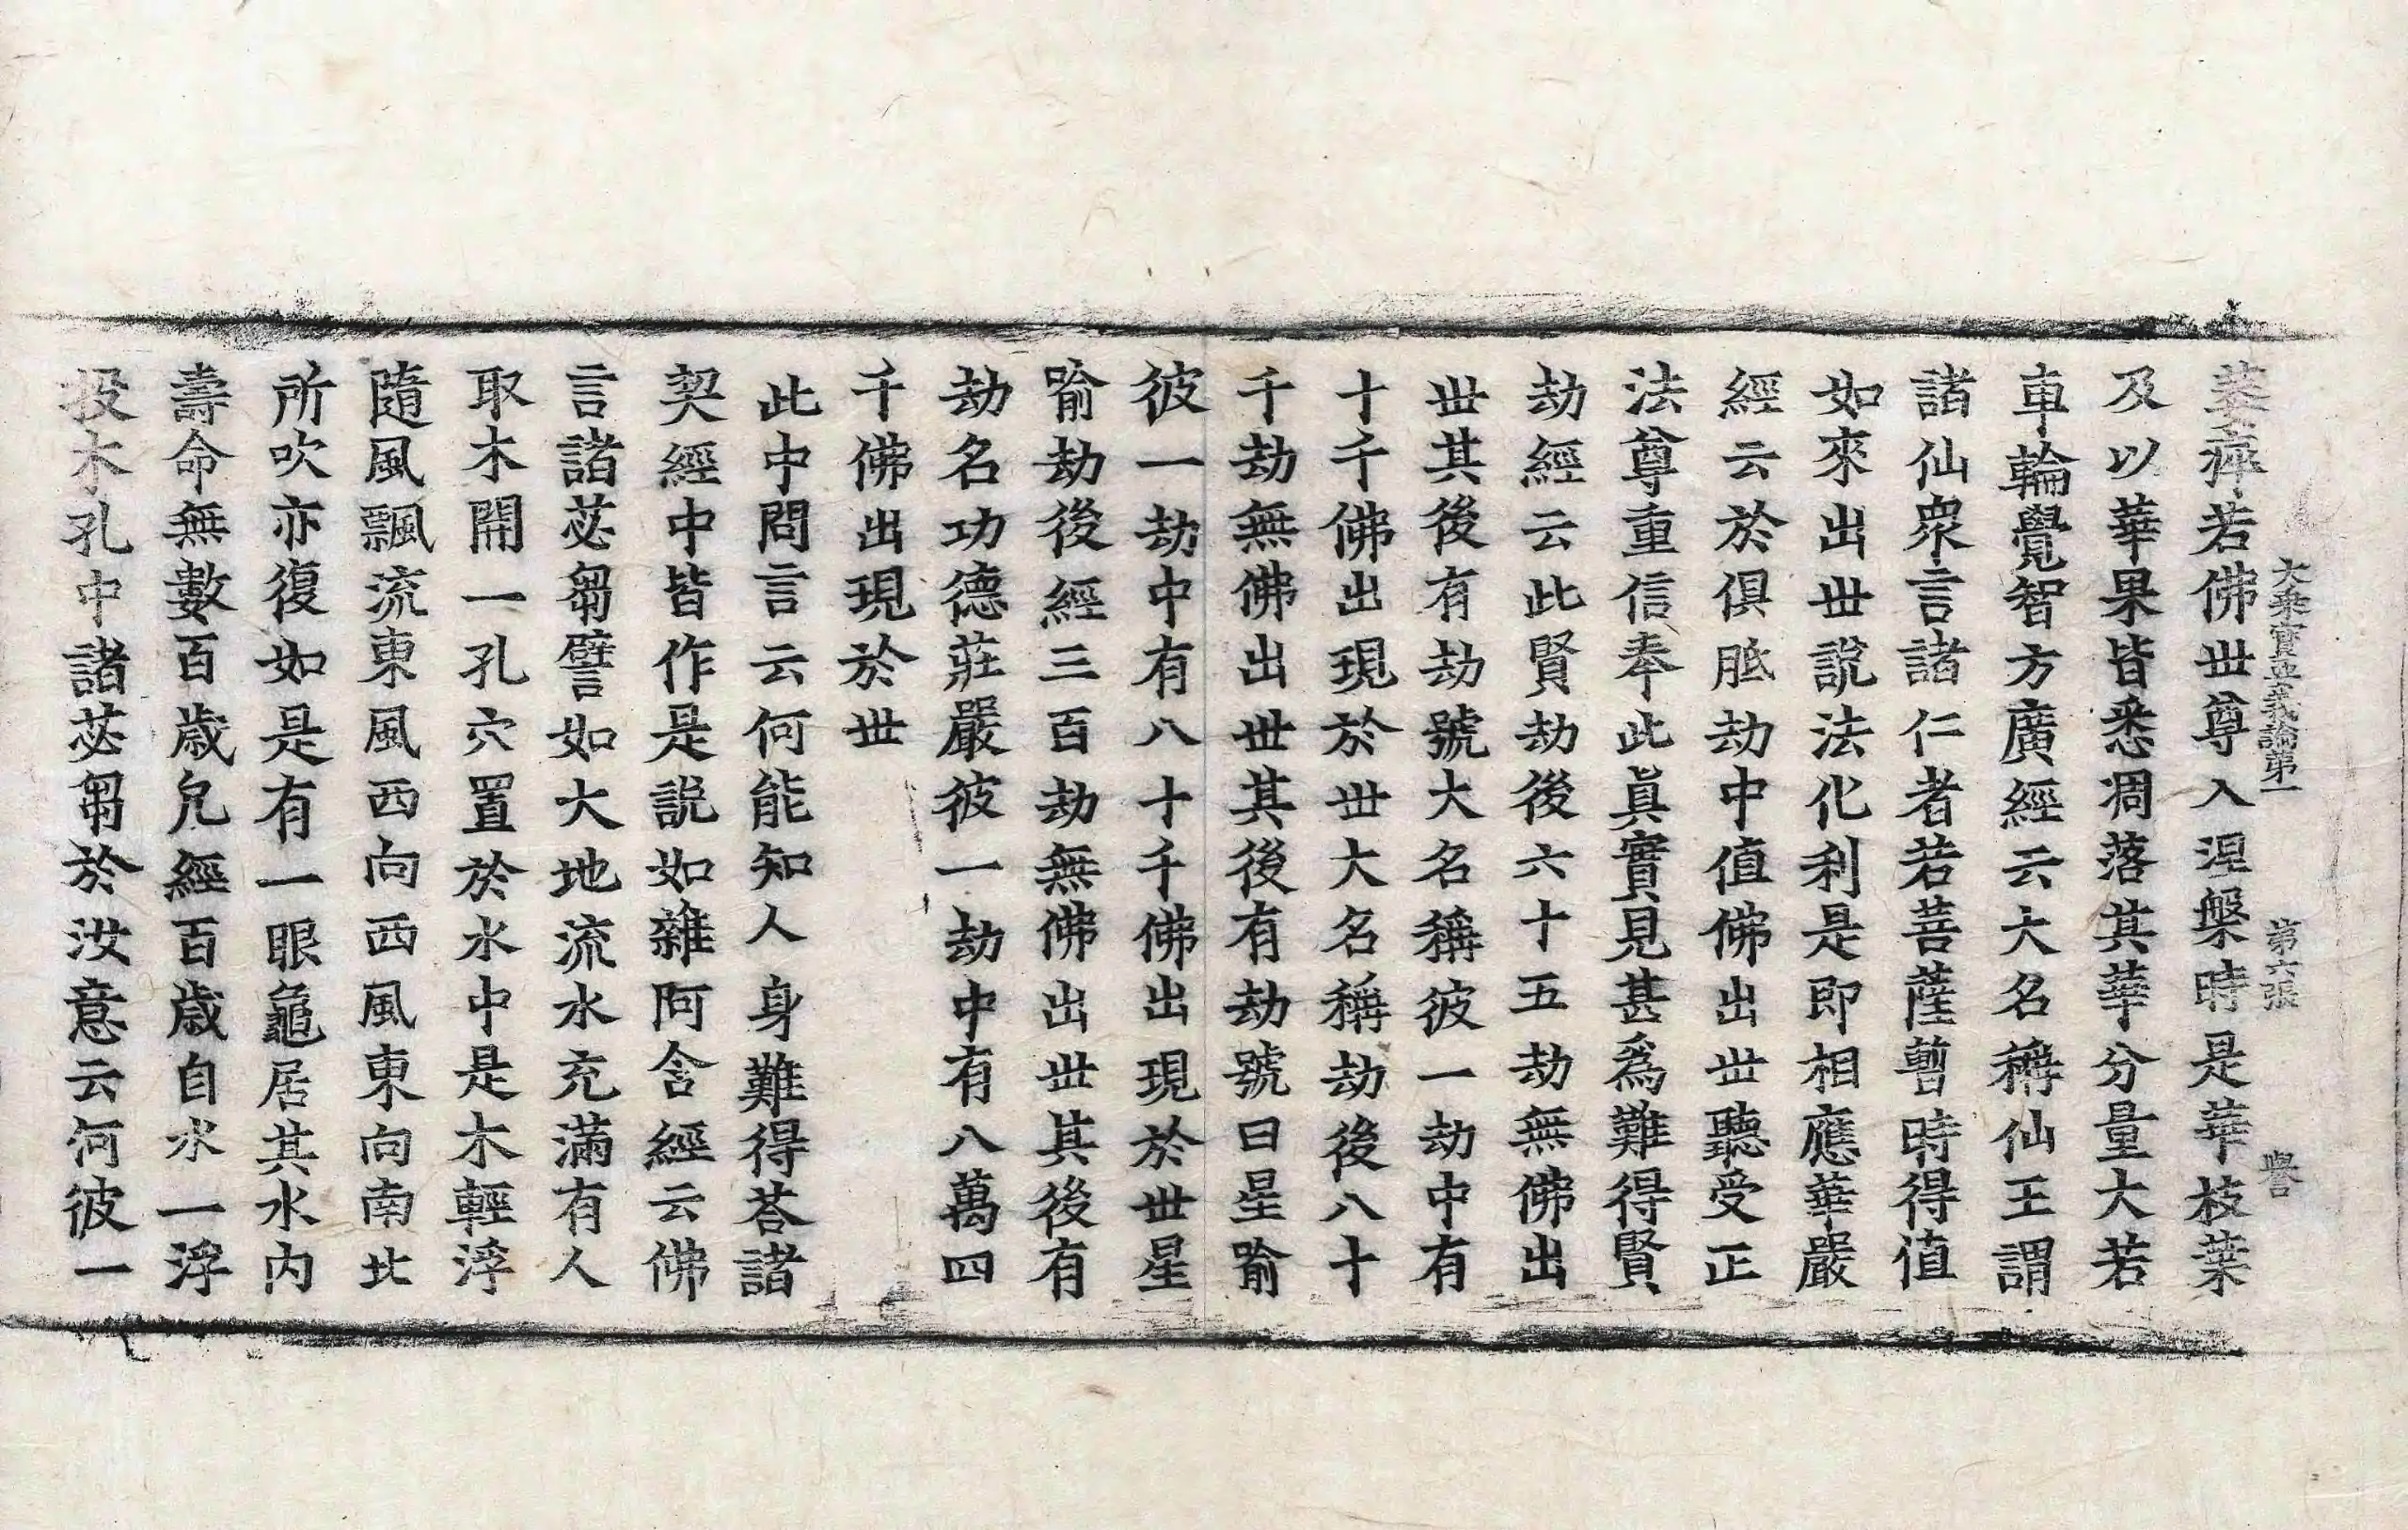 大乘寶要義論第一　第六張　譽
萎瘁若佛世尊入涅槃時是華枝葉
及以華果皆悉凋落其華分量大若
車輪覺智方廣經云大名稱仙王謂
諸仙眾言諸仁者若菩薩暫時得值
如來出世說法化利是即相應華嚴
經云於俱胝劫中值佛出世聽受正
法尊重信奉此眞實見甚爲難得賢
劫經云此賢劫後六十五劫無佛出
世其後有劫號大名稱彼一劫中有
十千佛出現於世大名稱劫後八十
千劫無佛出世其後有劫號曰星喻
彼一劫中有八十千佛出現於世星
喻劫後經三百劫無佛出世其後有
劫名功德莊嚴彼一劫中有八萬四
千佛出現於世
此中問言云何能知人身難得荅諸
契經中皆作是說如雜阿含經云佛
言諸苾芻譬如大地流水充滿有人
取木開一孔穴置於水中是木輕浮
隨風飄流東風西向西風東向南北
所吹亦復如是有一眼龜居其水內
壽命無數百歲凡經百歲自水一浮
投木孔中諸苾芻於汝意云何彼一